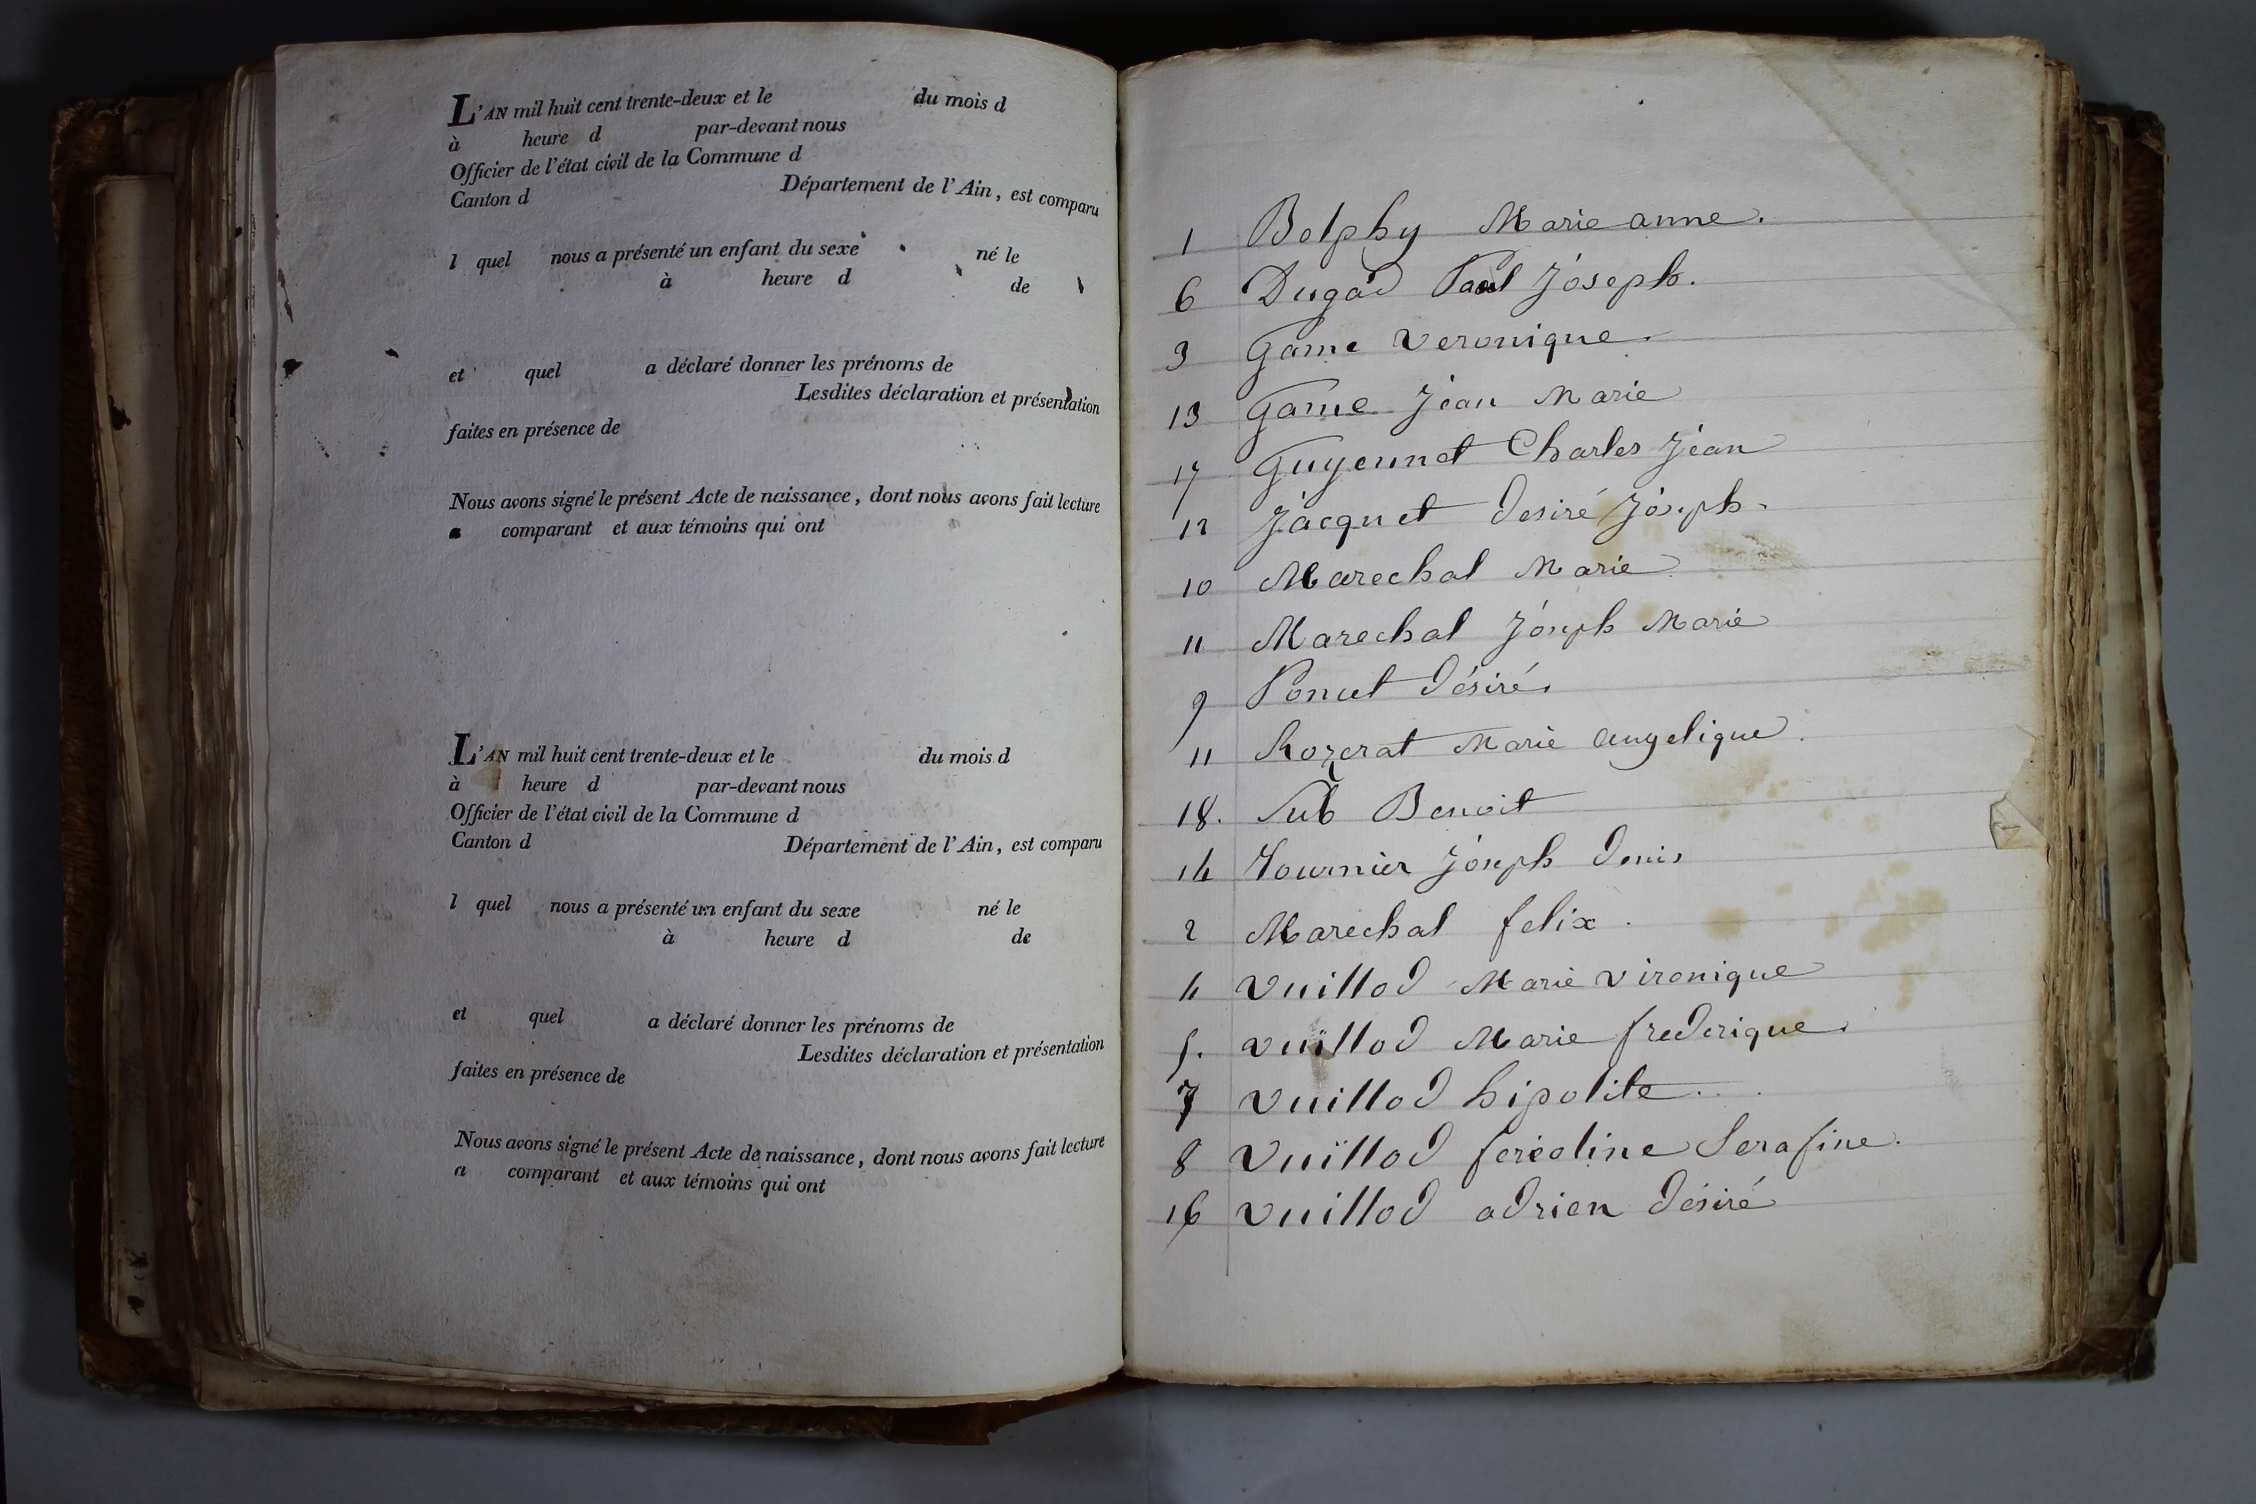 L'AN mil huit cent trente-deux et le du mois d
à heure d par-devant nous
Officier de l'état civil de la Commune d
Canton d Département de l'Ain, est comparu
l quel nous a présenté un enfant du sexe né le
à heure d de
et quel a déclaré donner les prénoms de
Lesdites déclaration et présentation
faites en présence de
Nous avons signé le présent Acte de naissance, dont nous avons fait lecture
a comparant et aux témoins qui ont
L'AN mil huit cent trente-deux et le du mois d
à heure d par-devant nous
Officier de l'état civil de la Commune d
Canton d Département de l'Ain, est comparu
l quel nous a présenté un enfant du sexe né le
à heure d de
et quel a déclaré donner les prénoms de
Lesdites déclaration et présentation
faites en présence de
Nous avons signé le présent Acte de naissance, dont nous avons fait lecture
a comparant et aux témoins qui ont
1 Bolphy Marie anne.
6 Dugad Paul Joseph.
3 Game veronique.
13 Game Jean Marie
17 Guyennet Charles Jean
12 Jacquet desiré Joseph.
10 Marechal Marie
11 Marechal Joseph Marie
9 Poncet désiré.
11 Rozerat Marie angelique.
18. Sub Benoit
14 Tournier Joseph denis
2 Marechal felix.
4 vuillod Marie vironique
5. vuillod Marie frederique.
7 vuillod hipolite..
8 vuillod feréoline Serafine.
16 vuillod adrien désiré